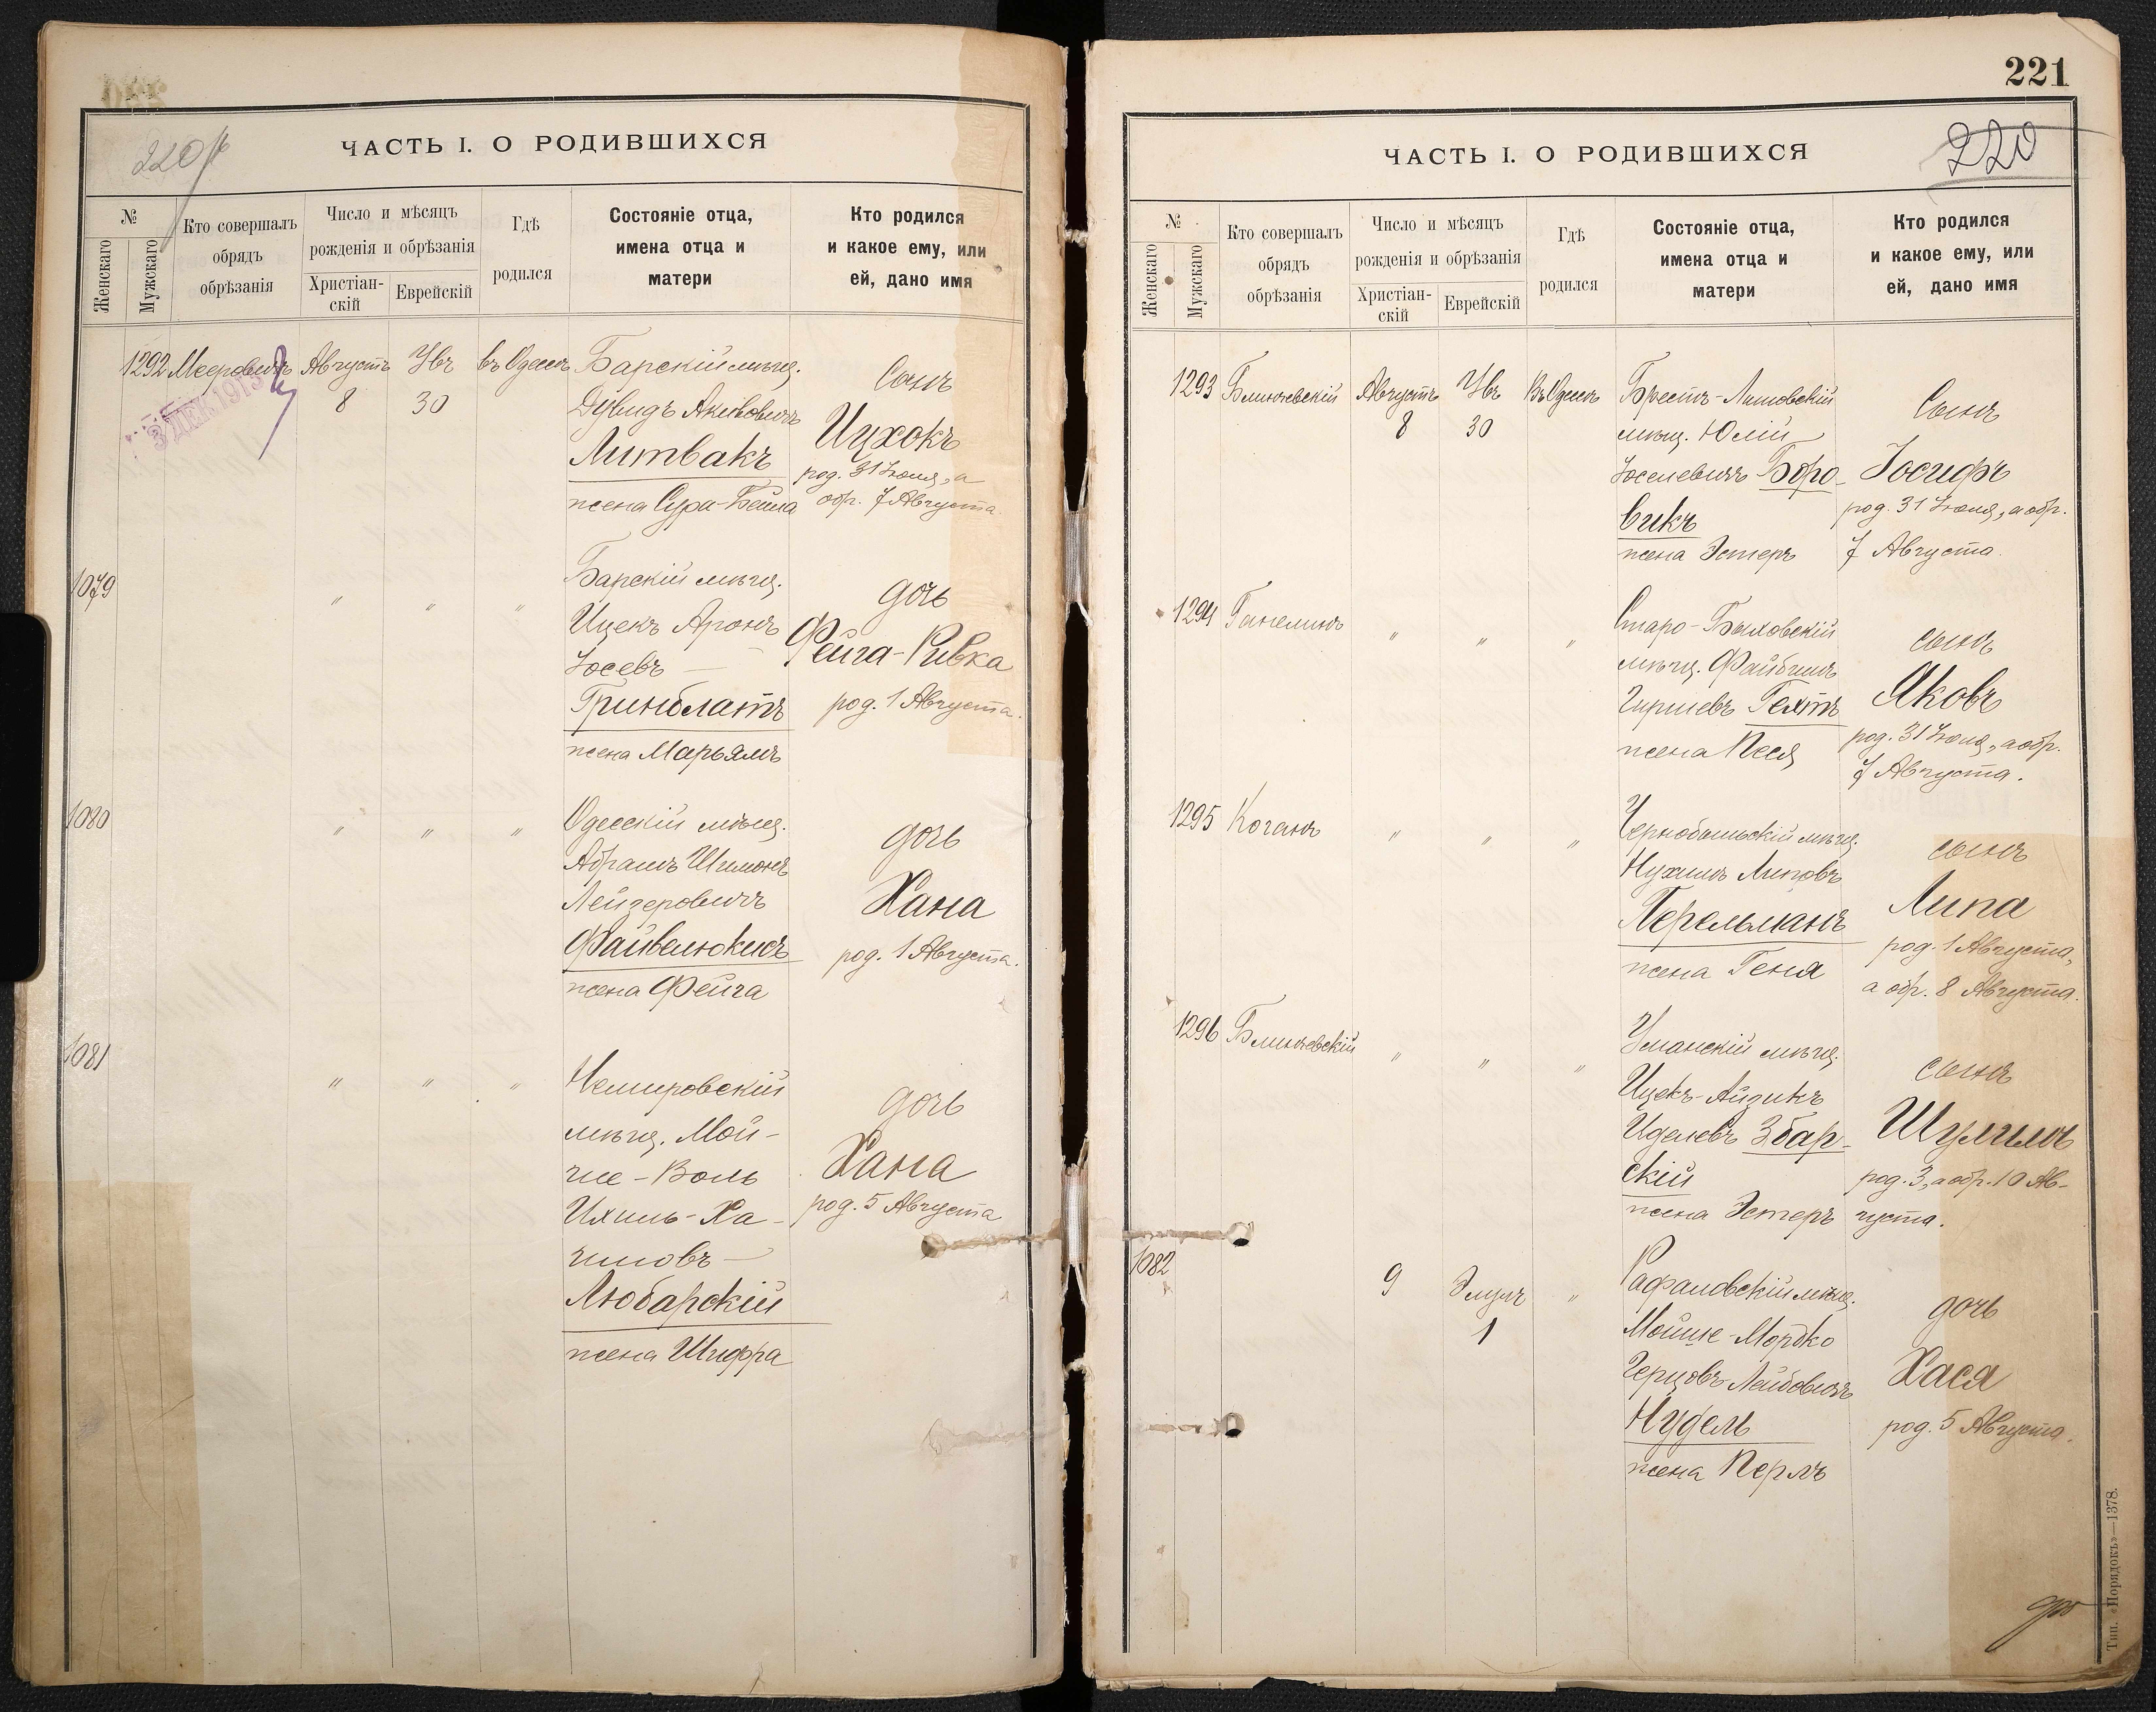 220 об
ЧАСТЬ I. О РОДИВШИХСЯ
№
Женскаго
Мужскаго
Кто совершалъ
обрядъ
обрѣзанія
Число и мѣсяцъ
рожденія и обрѣзанія
Христіан-
скій
Еврейскій
Гдѣ
родился
Состояніе отца,
имена отца и
матери
Кто родился
и какое ему, или
ей, дано имя
1292 Мееровичъ Августъ 8 Увъ 30 въ Одессѣ
3 ДЕК 1913
Барскій мѣщ.
Дувидъ
Литвакъ
жена Сура-Бейла
Сынъ
Ицхокъ
род. 31 Іюля, а
обр. 7 Августа
1079 " " "
Барскій мѣщ.
Ицекъ Аронъ
Іосевъ —
Гринблатъ
жена Марьямъ
дочь
Фейга-Ривка
род. 1 Августа.
1080 " " "
Одесскій мѣщ.
Абрамъ Шимонъ
Лейзеровичъ
Файвелюкисъ
жена Фейга
дочь
Хана
род. 1 Августа.
1081 " " "
Немировскій
мѣщ. Мой-
ше-Воль
Ихиль-Ха-
имовъ —
Любарскій
жена Шифра
дочь
Хана
род. 5 Августа
221
220
ЧАСТЬ I. О РОДИВШИХСЯ
№
Женскаго
Мужскаго
Кто совершалъ
обрядъ
обрѣзанія
Число и мѣсяцъ
рожденія и обрѣзанія
Христіан-
скій
Еврейскій
Гдѣ
родился
Состояніе отца,
имена отца и
матери
Кто родился
и какое ему, или
ей, дано имя
1293 Блинчевскій Августъ 8 Увъ 30 Въ Одессѣ
Брестъ-Литовскій
мѣщ. Юлій
Іоселевичъ Боро-
викъ
жена Эстеръ
Сынъ
Іосифъ
род. 31 Іюля, а обр.
7 Августа.
1294 Ганелинъ " " "
Старо-Быховскій
мѣщ. Файбишъ
Гиршевъ Гехтъ
жена Песя
сынъ
Яковъ
род. 31 Іюля, а обр.
7 Августа.
1295 Коганъ " " "
Чернобыльскій мѣщ.
Нухимъ Липовъ
Перельманъ
жена Геня
сынъ
Липа
род. 1 Августа,
а обр. 8 Августа.
1296 Блинчевскій " " "
Уманскій мѣщ.
Ицекъ-Айзикъ
Иделевъ Збар-
скій
жена Эстеръ
сынъ
Шулимъ
род. 3, а обр. 10 Ав-
густа.
1082 9 Элулъ 1 "
Рафаловскій мѣщ.
Мойше-Мордко
Герцовъ-Лейбовичъ
Нудель
жена Перлъ
дочь
Хася
род. 5 Августа.
Тип. «Порядокъ»—1378.